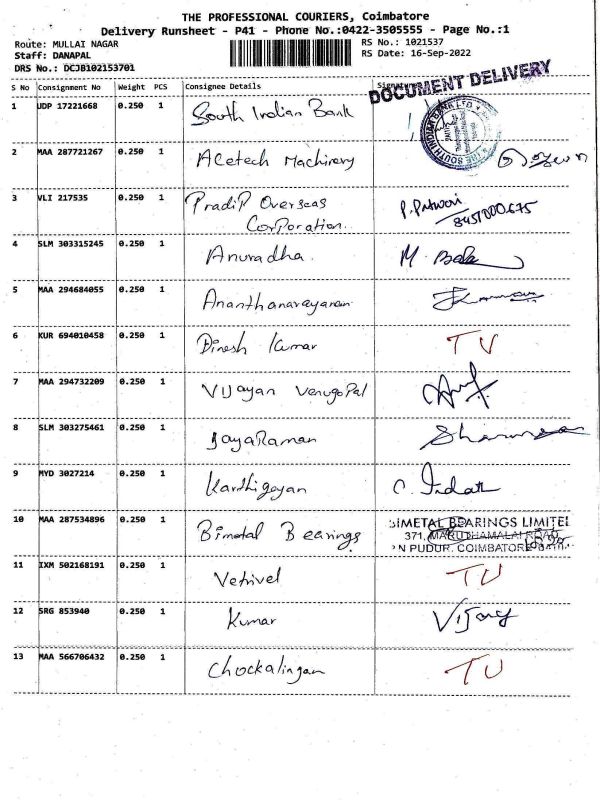 THE PROFESSIONAL COURIERS, Coimbatore
Delivery Runsheet - P41 - Phone No.:0422-3505555 - Page No.:1
Route: MULLAI NAGAR
RS No.: 1021537
Staff: DANAPAL
RS Date: 16-Sep-2022
DRS No.: DCJB102153701
DOCUMENT DELIVERY
S No Consignment No Weight PCS Consignee Details
1 UDP 17221668 0.250 1 South Indian Bank
2 MAA 287721267 0.250 1 Acetech Machinery
3 VLI 217535 0.250 1 Pradip Overseas
Corporation. P. Patwari
8451000675
4 SLM 303315245 0.250 1 Anuradha. M. Bala
5 MAA 294684055 0.250 1 Ananthanarayanan
6 KUR 694010458 0.250 1 Dinesh Kumar TU
7 MAA 294732209 0.250 1 Vijayan Venugopal
8 SLM 303275461 0.250 1 JayaRaman
9 MYD 3027214 0.250 1 Karthigeyan
10 MAA 287534896 0.250 1 Bimetal Bearings BIMETAL BEARINGS LIMITED
371, MARUDHAMALAI ROAD,
N PUDUR, COIMBATORE
11 IXM 502168191 0.250 1 Vetrivel TU
12 SRG 853940 0.250 1 Kumar Vijay
13 MAA 566706432 0.250 1 Chockalingam TU